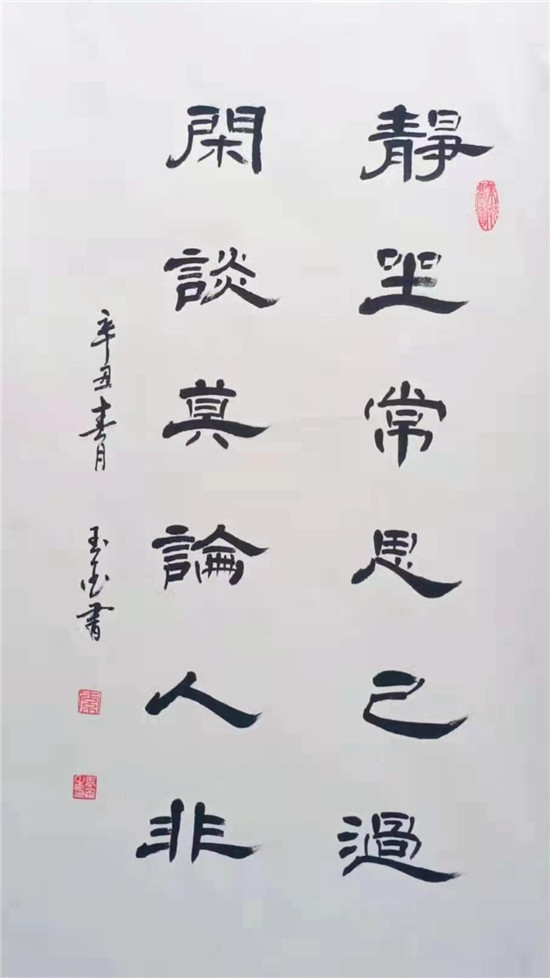 靜坐常思己過
閑談莫論人非
辛丑春月
玉金書